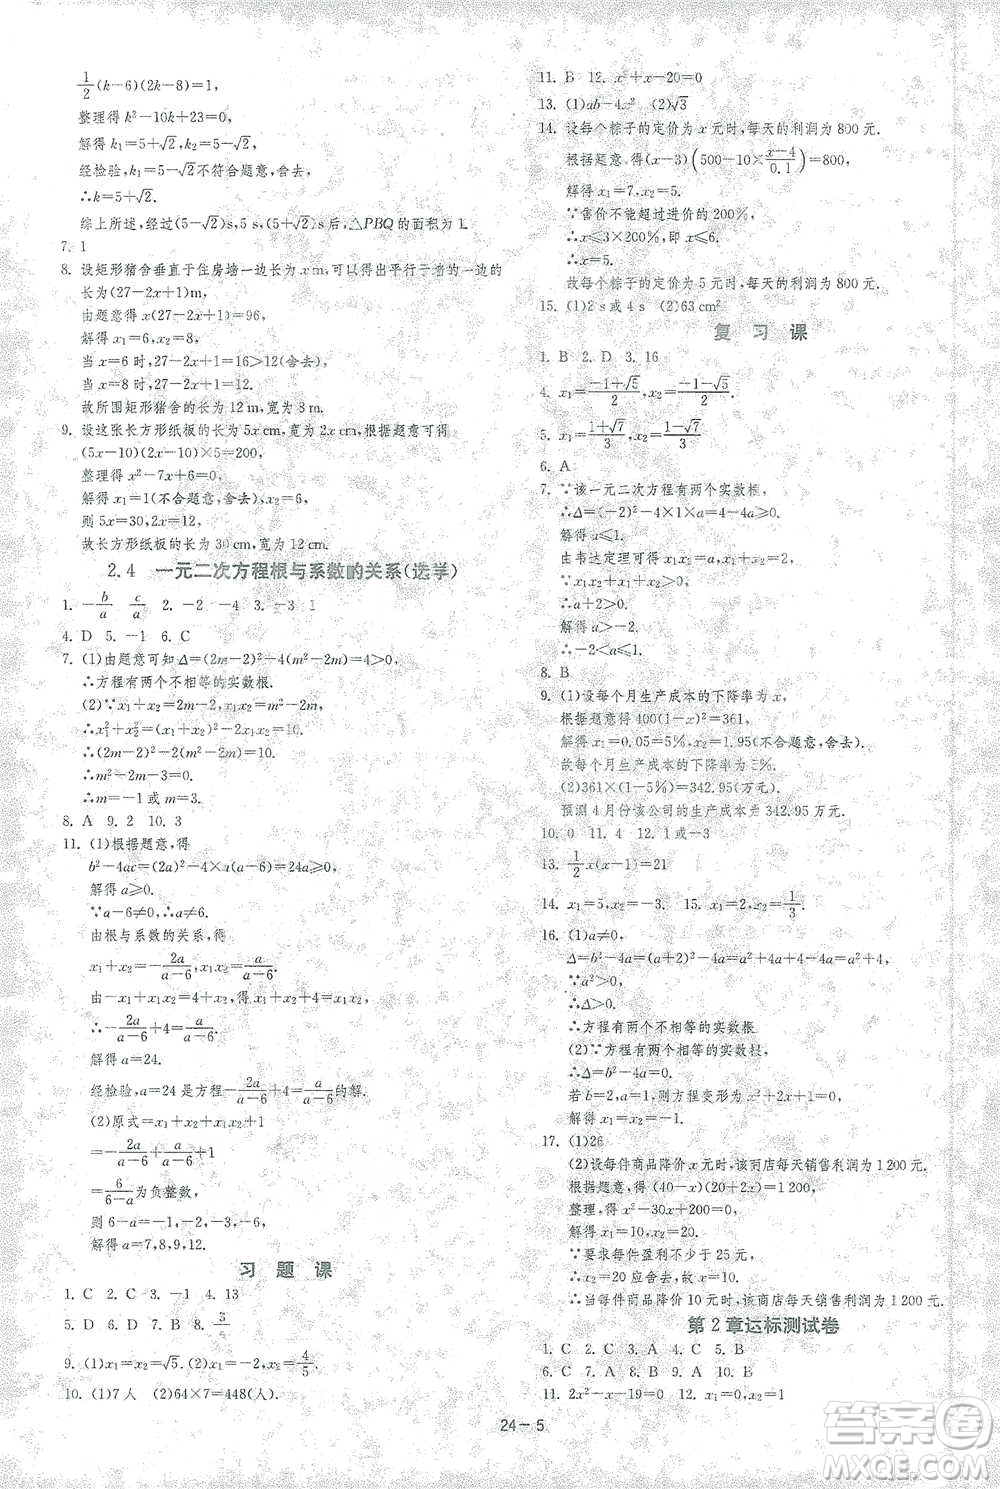 1/2(k-6)(2k-8)=1,
整理得 k²-10k+23=0,
解得 k₁=5+√2,k₂=5-√2,
经检验,k₁=5-√2不符合题意,舍去,
∴k=5+√2.
综上所述,经过(5-√2)s,5 s,(5+√2)s后,△PBQ的面积为1.
7. 1
8. 设矩形猪舍垂直于住房墙一边长为 x m,可以得出平行于墙的一边的
长为(27-2x+1)m,
由题意得 x(27-2x+1)=96,
解得 x₁=6,x₂=8,
当 x=6时,27-2x+1=16>12(舍去),
当 x=8时,27-2x+1=12.
故所围矩形猪舍的长为 12 m,宽为 8 m.
9. 设这张长方形纸板的长为 5x cm,宽为 2x cm,根据题意可得
(5x-10)(2x-10)×5=200,
整理得 x²-7x+6=0,
解得 x₁=1(不合题意,舍去),x₂=6,
则 5x=30,2x=12.
故长方形纸板的长为 30 cm,宽为 12 cm.
2.4 一元二次方程根与系数的关系(选学)
1. -b/a c/a 2. -2 -4 3. -3 1
4. D 5. -1 6. C
7. (1)由题意可知 Δ=(2m-2)²-4(m²-2m)=4>0,
∴方程有两个不相等的实数根.
(2)∵x₁+x₂=2m-2,x₁x₂=m²-2m,
∴x₁²+x₂²=(x₁+x₂)²-2x₁x₂=10.
∴(2m-2)²-2(m²-2m)=10.
∴m²-2m-3=0.
∴m=-1 或 m=3.
8. A 9. 2 10. 3
11. (1)根据题意,得
b²-4ac=(2a)²-4×(a-6)×a=24a≥0,
解得 a≥0.
∵a-6≠0,∴a≠6.
由根与系数的关系,得
x₁+x₂=-2a/(a-6),x₁x₂=a/(a-6).
由-x₁+x₁x₂=4+x₂,得 x₁+x₂+4=x₁x₂,
∴-2a/(a-6)+4=a/(a-6).
解得 a=24.
经检验,a=24 是方程-2a/(a-6)+4=a/(a-6)的解.
(2)原式=x₁+x₂+x₁x₂+1
=-2a/(a-6)+a/(a-6)+1
=6/(6-a)为负整数,
则 6-a=-1,-2,-3,-6.
解得 a=7,8,9,12.
习 题 课
1. C 2. C 3. -1 4. 13
5. D 6. D 7. B 8. 3/2
9. (1)x₁=x₂=√5. (2)x₁=3,x₂=4/5.
10. (1)7人 (2)64×7=448(人).
11. B 12. x²+x-20=0
13. (1)ab-4x² (2)√3
14. 设每个粽子的定价为 x 元时,每天的利润为 800 元.
根据题意,得(x-3)(500-10×(x-4)/0.1)=800,
解得 x₁=7,x₂=5.
∵售价不能超过进价的 200%,
∴x≤3×200%,即 x≤6.
∴x=5.
故每个粽子的定价为 5 元时,每天的利润为 800 元.
15. (1)2 s 或 4 s (2)63 cm²
复 习 课
1. B 2. D 3. 16
4. x₁=(-1+√5)/2,x₂=(-1-√5)/2
5. x₁=(1+√7)/3,x₂=(1-√7)/3
6. A
7. ∵该一元二次方程有两个实数根,
∴Δ=(-2)²-4×1×a=4-4a≥0,
解得 a≤1.
由韦达定理可得 x₁x₂=a,x₁+x₂=2,
∴a+2>0,
解得 a>-2.
∴-2<a≤1.
8. B
9. (1)设每个月生产成本的下降率为 x,
根据题意得 400(1-x)²=361,
解得 x₁=0.05=5%,x₂=1.95(不合题意,舍去).
故每个月生产成本的下降率为 5%.
(2)361×(1-5%)=342.95(万元).
预测 4 月份该公司的生产成本为 342.95 万元.
10. 0 11. 4 12. 1 或-3
13. 1/2x(x-1)=21
14. x₁=5,x₂=-3. 15. x₁=2,x₂=-1/3.
16. (1)a≠0,
Δ=b²-4a=(a+2)²-4a=a²+4a+4-4a=a²+4,
∵a²>0,
∴Δ>0,
∴方程有两个不相等的实数根.
(2)∵方程有两个相等的实数根,
∴Δ=b²-4a=0,
若 b=2,a=1,则方程变形为 x²+2x+1=0,
解得 x₁=x₂=-1.
17. (1)26
(2)设每件商品降价 x 元时,该商店每天销售利润为 1 200 元.
根据题意,得(40-x)(20+2x)=1 200,
整理,得 x²-30x+200=0,
解得 x₁=10,x₂=20.
∵要求每件盈利不少于 25 元,
∴x₂=20 应舍去,∴x=10.
∴当每件商品降价 10 元时,该商店每天销售利润为 1 200 元.
第 2 章达标测试卷
1. C 2. C 3. A 4. C 5. B
6. C 7. A 8. B 9. A 10. B
11. 2x²-x-19=0 12. x₁=0,x₂=1
24-5
答案圈
MXQE.COM